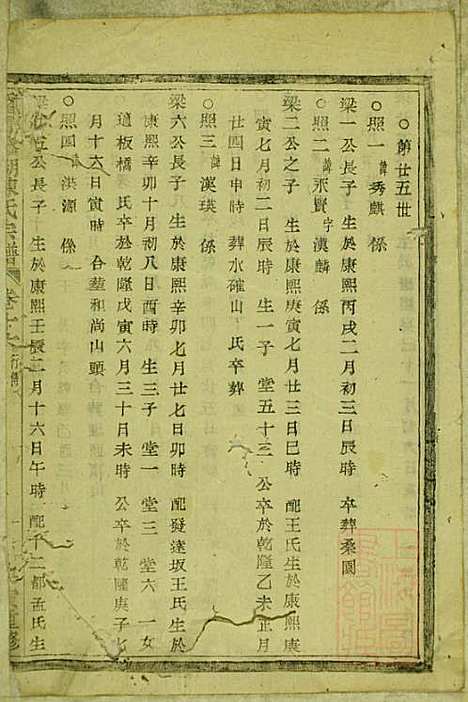 ○第廿五世
○照一 諱秀麒 係
梁一公長子 生於康熙丙戌二月初三日辰時 卒葬桑園
○照二 諱永賢 字漢麟 係
梁二公之子 生於康熙庚寅七月廿三日巳時 配王氏生於康熙庚
寅七月初二日辰時 生一子 堂五十三 公卒於乾隆乙未正月
廿四日申時 葬水確山 氏卒葬
○照三 諱漢瑛 係
梁六公長子 生於康熙辛卯七月廿七日卯時 配發達坂王氏生於
康熙辛卯十月初八日酉時 生三子 堂一 堂三 堂六 一女
適板橋 氏卒於乾隆戊寅六月三十日未時 公卒於乾隆庚子七
月十六日寅時 合葬和尚山頭
○照四 諱洪源 係
梁 公長子 生於康熙壬辰二月十六日午時 配十二都孟氏生
湖陳氏宗譜 卷 行傳
重修